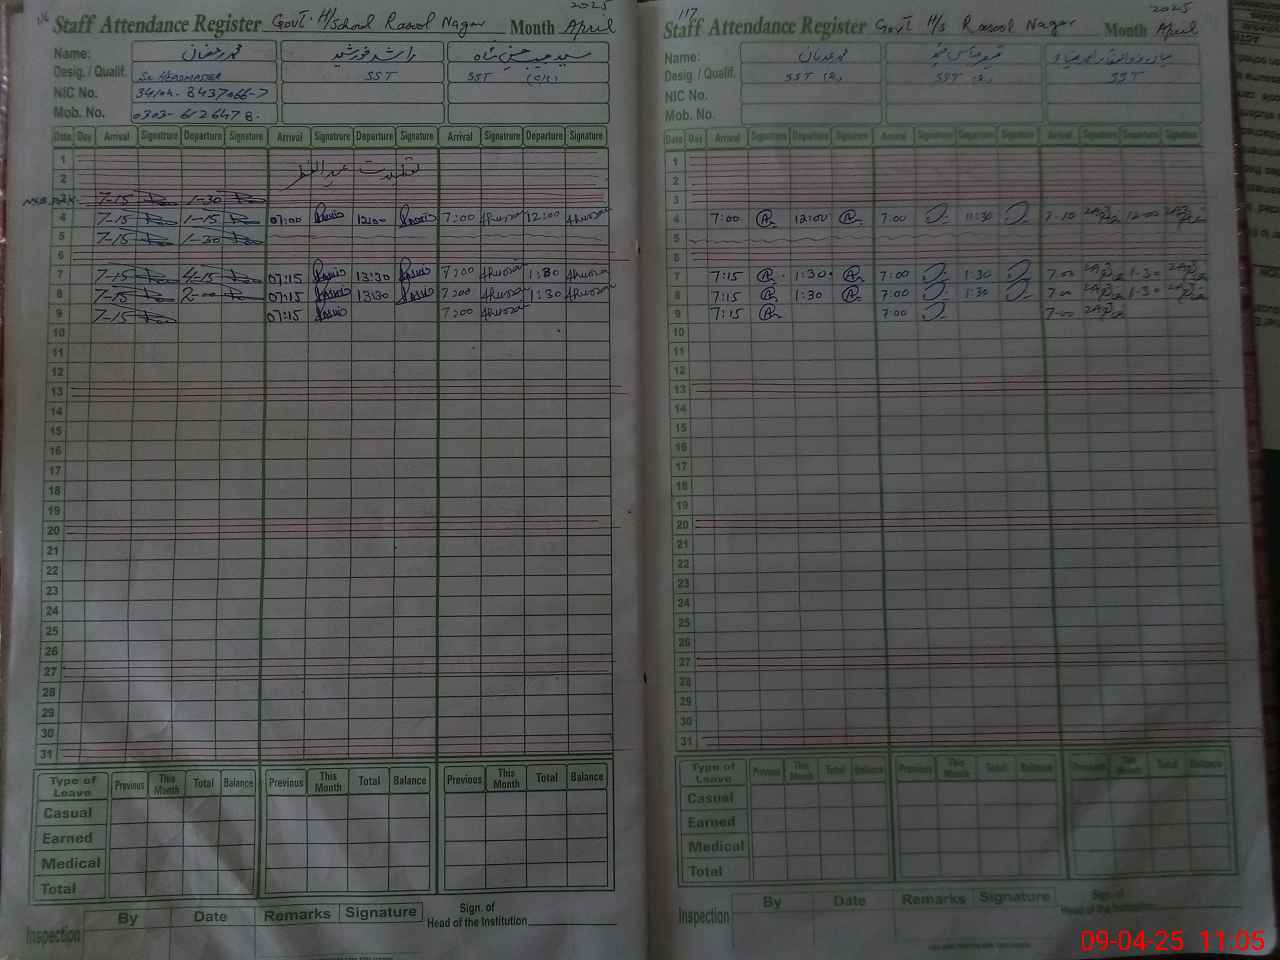 116 2025
Staff Attendance Register Govt. H/School Rasool Nagar Month April
Name: محمد رمضان راشد خورشید
Desig. / Qualif. Sr. HEADMASTER SST SST
NIC No. 34104-8437066-7
Mob. No. 0303-6126478.
Date Day Arrival Signatrure Departure Signature Arrival Signatrure Departure Signature Arrival Signatrure Departure Signature
1 تعطیلات عید الفطر
2
3 7-15 1-30
4 7-15 1-15 07:00 12:00 7:00 12:00
5 7-15 1-30
6
7 7-15 4-15 07:15 13:30 7:00 1:30
8 7-15 2-00 07:15 13:30 7:00 1:30
9 7-15 07:15 7:00
10
11
12
13
14
15
16
17
18
19
20
21
22
23
24
25
26
27
28
29
30
31
Type of Leave Previous This Month Total Balance Previous This Month Total Balance Previous This Month Total Balance
Casual
Earned
Medical
Total
Inspection By Date Remarks Signature Sign. of Head of the Institution
117 2025
Staff Attendance Register Govt H/S Rasool Nagar Month April
Name:
Desig. / Qualif. SST SST SST
NIC No.
Mob. No.
Date Day Arrival Signatrure Departure Signature Arrival Signatrure Departure Signature Arrival Signatrure Departure Signature
1
2
3
4 7:00 12:00 7:00 11:30 7-10 12-00
5
6
7 7:15 1:30 7:00 1:30 7-00 1-30
8 7:15 1:30 7:00 1:30 7-00 1-30
9 7:15 7:00 7-00
10
11
12
13
14
15
16
17
18
19
20
21
22
23
24
25
26
27
28
29
30
31
Type of Leave Previous This Month Total Balance Previous This Month Total Balance Previous This Month Total Balance
Casual
Earned
Medical
Total
Inspection By Date Remarks Signature Sign. of Head of the Institution
09-04-25 11:05